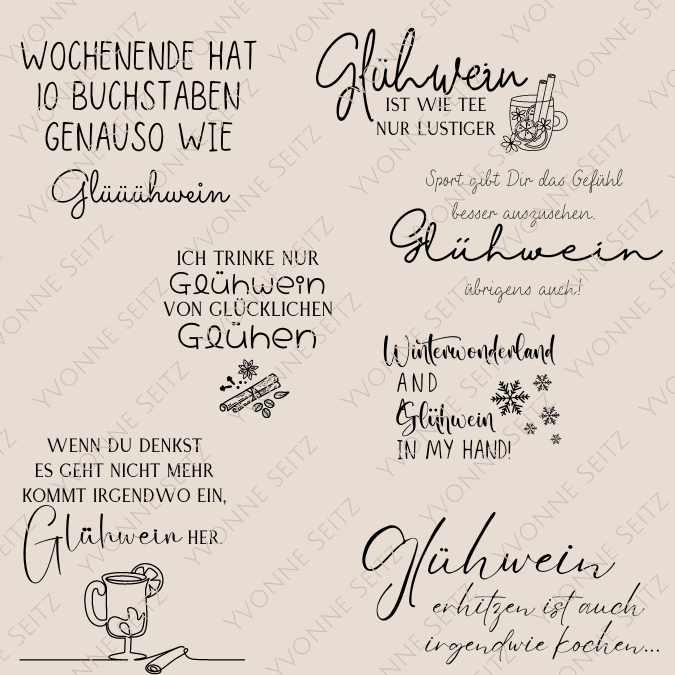 WOCHENENDE HAT
10 BUCHSTABEN
GENAUSO WIE
Glüüühwein
Glühwein
IST WIE TEE
NUR LUSTIGER
Sport gibt Dir das Gefühl
besser auszusehen.
Glühwein
übrigens auch!
ICH TRINKE NUR
Glühwein
VON GLÜCKLICHEN
Glühen
Winterwonderland
AND
Glühwein
IN MY HAND!
WENN DU DENKST
ES GEHT NICHT MEHR
KOMMT IRGENDWO EIN,
Glühwein HER.
Glühwein
erhitzen ist auch
irgendwie kochen...
YVONNE SEITZ